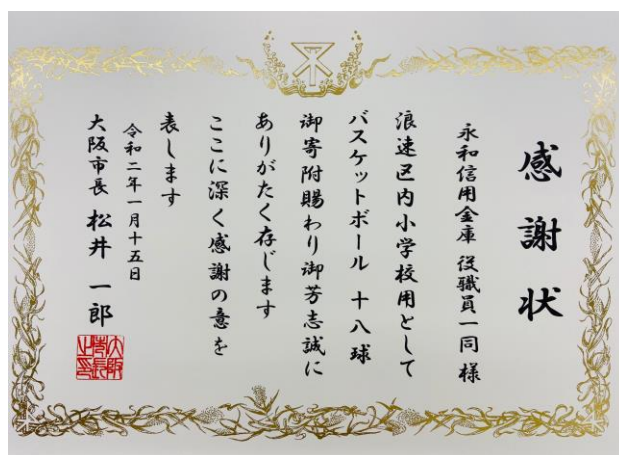 感謝状
永和信用金庫 役職員一同 様
浪速区内小学校用として
バスケットボール 十八球
御寄附賜わり御芳志誠に
ありがたく存じます
ここに深く感謝の意を
表します
令和二年一月十五日
大阪市長 松井 一郎
大阪市長之印